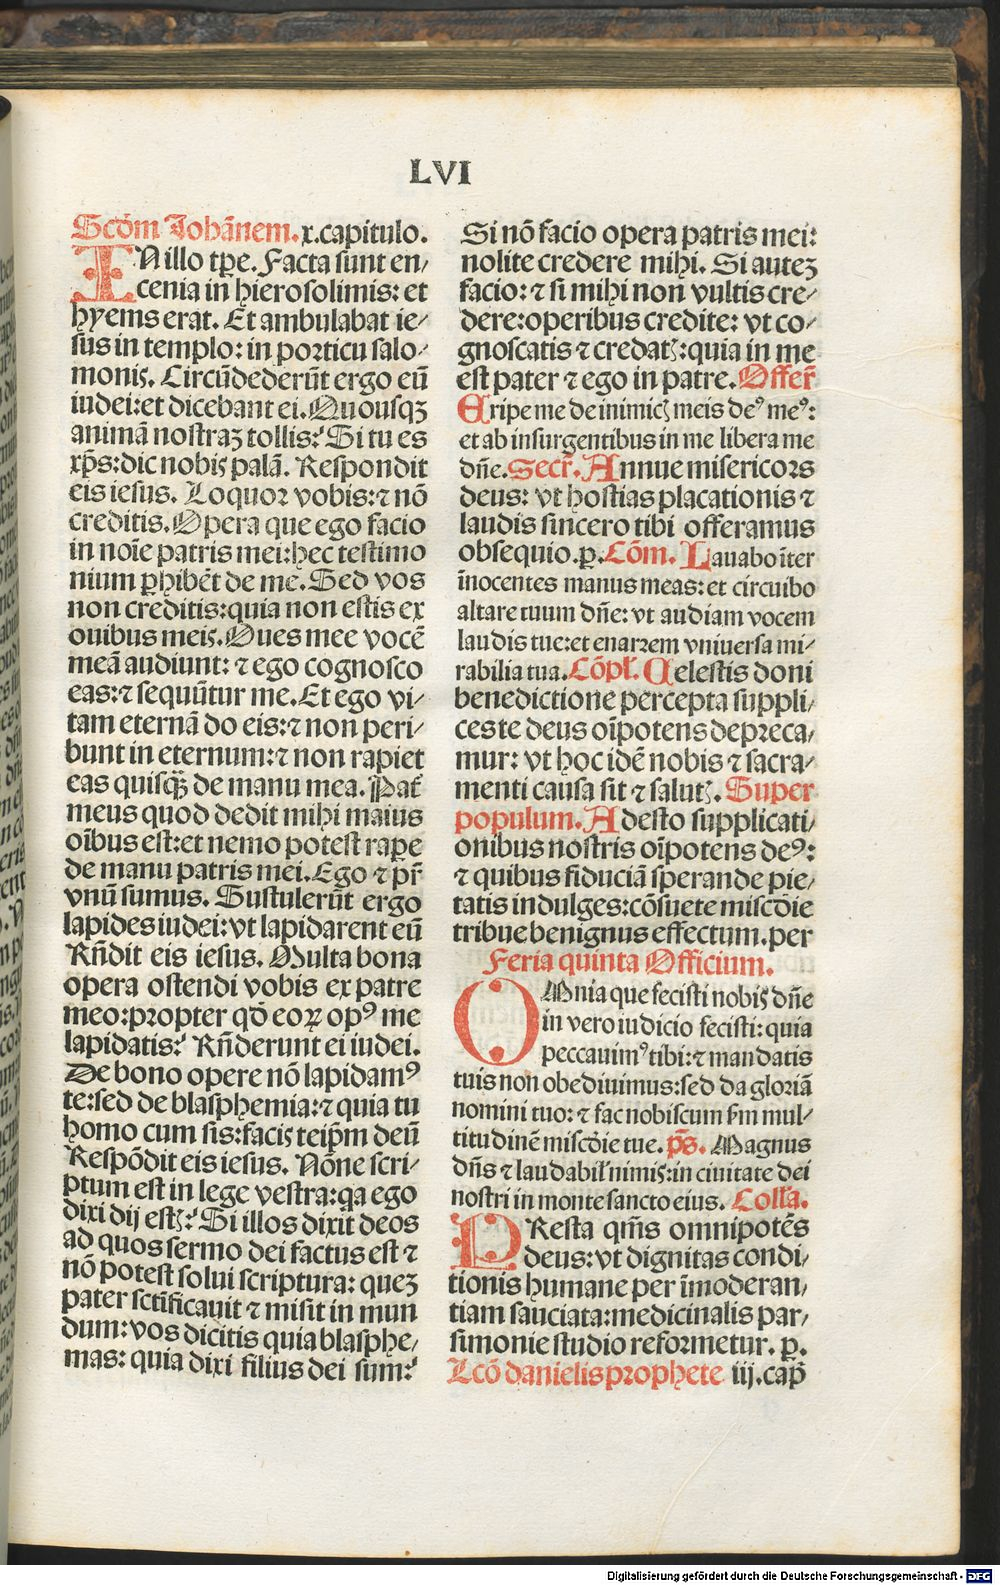 LVI
Scďm Johãnem. x. capitulo.
IN illo tꝑe. Facta sunt en⸗
cenia in hierosolimis: et
hyems erat. Et ambulabat ie⸗
sus in templo: in porticu salo⸗
monis. Circũdederũt ergo eũ
iudei: et dicebant ei. Quousqꝫ
animã nostraꝫ tollis? Si tu es
xp̄s: dic nobis palã. Respondit
eis iesus. Loquor vobis: ⁊ nõ
creditis. Opera que ego facio
in noĩe patris mei: hec testimo
nium ꝑhibẽt de me. Sed vos
non creditis: quia non estis ex
ouibus meis. Oues mee vocẽ
meã audiunt: ⁊ ego cognosco
eas: ⁊ sequũtur me. Et ego vi⸗
tam eternã do eis: ⁊ non peri⸗
bunt in eternum: ⁊ non rapiet
eas quisq̃ꝫ de manu mea. Pať
meus quod dedit mihi maius
oĩbus est: et nemo potest raꝑe
de manu patris mei. Ego ⁊ pr̃
vnũ sumus. Sustulerũt ergo
lapides iudei: vt lapidarent eũ
Rñdit eis iesus. Multa bona
opera ostendi vobis ex patre
meo: propter qd̄ eoꝝ opꝰ me
lapidatis? Rñderunt ei iudei.
De bono opere nõ lapidamꝰ
te: sed de blasphemia: ⁊ quia tu
homo cum sis: facis teip̄m deũ
Respõdit eis iesus. Nõne scri⸗
ptum est in lege vestra: qa ego
dixi dij estꝫ? Si illos dixit deos
ad quos sermo dei factus est ⁊
nõ potest solui scriptura: queꝫ
pater sctĩficauit ⁊ misit in mun
dum: vos dicitis quia blasphe⸗
mas: quia dixi filius dei sum?
Si nõ facio opera patris mei:
nolite credere mihi. Si auteꝫ
facio: ⁊ si mihi non vultis cre⸗
dere: operibus credite: vt co⸗
gnoscatis ⁊ credatꝫ: quia in me
est pater ⁊ ego in patre. Offer̃
Eripe me de inimicꝫ meis deꝰ meꝰ:
et ab insurgentibus in me libera me
dñe. Secr̃. Annue misericors
deus: vt hostias placationis ⁊
laudis sincero tibi offeramus
obsequio. ꝑ. Cõm. Lauabo ĩter
ĩnocentes manus meas: et circuibo
altare tuum dñe: vt audiam vocem
laudis tue: et enarrem vniuersa mi⸗
rabilia tua. Cõpl̃. Celestis doni
benedictione percepta suppli⸗
ces te deus oĩpotens depreca⸗
mur: vt hoc idẽ nobis ⁊ sacra⸗
menti causa sit ⁊ salutꝫ. Super
populum. Adesto supplicati⸗
onibus nostris oĩpotens deꝰ:
⁊ quibus fiduciã sperande pie⸗
tatis indulges: cõsuete miscďie
tribue benignus effectum. per
Feria quinta Officium.
OMnia que fecisti nobis dñe
in vero iudicio fecisti: quia
peccauimꝰ tibi: ⁊ mandatis
tuis non obediuimus: sed da gloriã
nomini tuo: ⁊ fac nobiscum ẜm mul⸗
titudinẽ miscďie tue. p̃s. Magnus
dñs ⁊ laudabil̃ nimis: in ciuitate dei
nostri in monte sancto eius. Coll̃a.
PResta qm̃s omnipotẽs
deus: vt dignitas condi⸗
tionis humane per ĩmoderan⸗
tiam sauciata: medicinalis par⸗
simonie studio reformetur. ꝑ.
Lcõ danielis prophete iij. cap̃
Digitalisierung gefördert durch die Deutsche Forschungsgemeinschaft - DFG